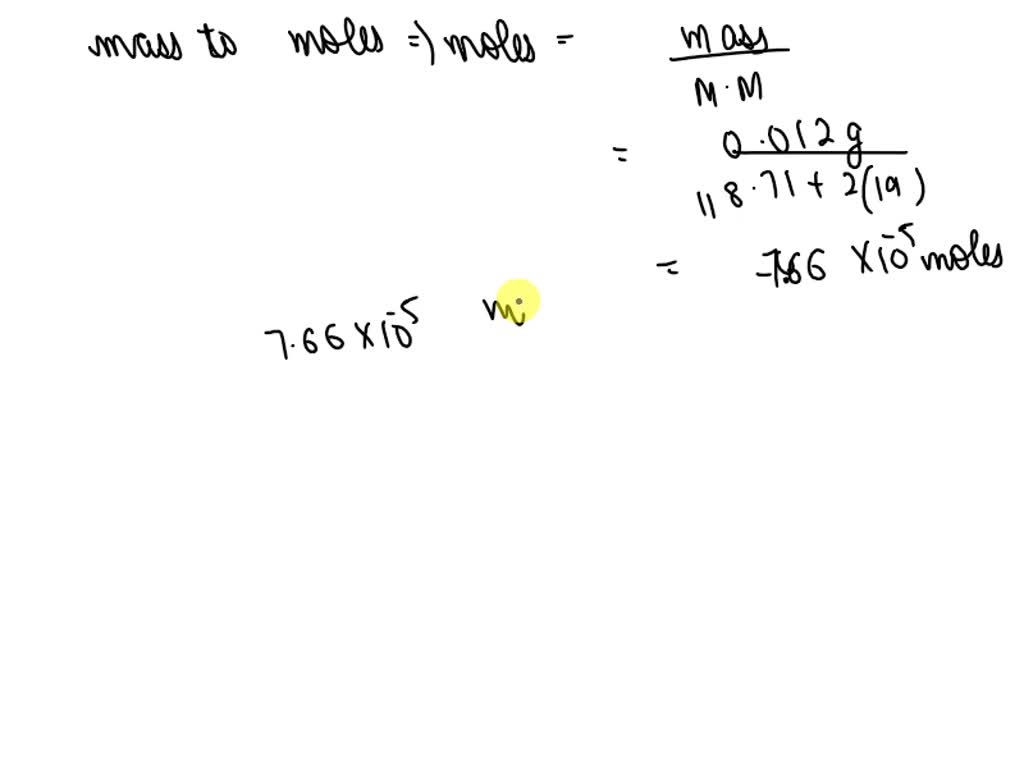 mass to moles => moles = mass
M.M
= 0.012g
118.71 + 2(19)
= 7.66 X10⁻⁵ moles
7.66 X10⁻⁵ m